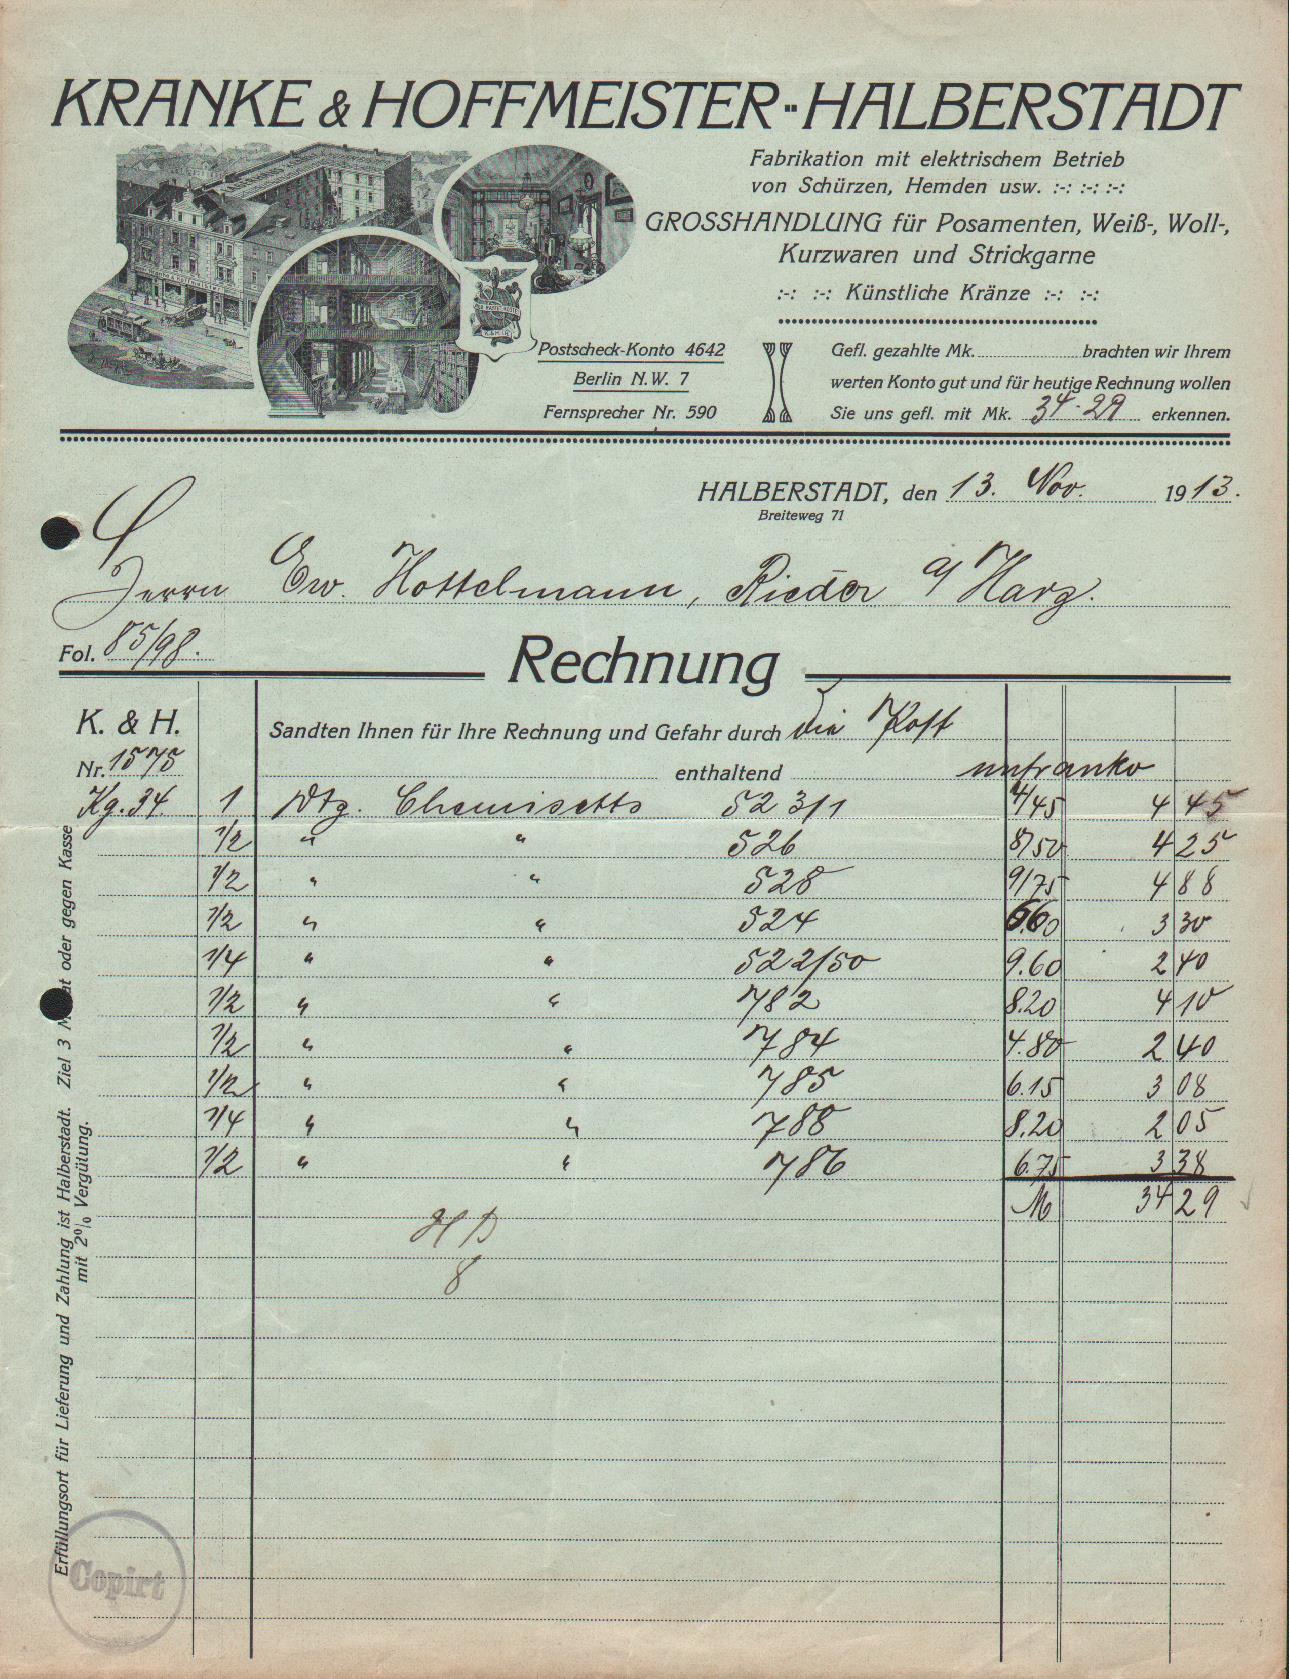 KRANKE & HOFFMEISTER-HALBERSTADT
Fabrikation mit elektrischem Betrieb
von Schürzen, Hemden usw. :-: :-: :-:
GROSSHANDLUNG für Posamenten, Weiß-, Woll-,
Kurzwaren und Strickgarne
:-: :-: Künstliche Kränze :-: :-:
Postscheck-Konto 4642
Berlin N.W. 7
Fernsprecher Nr. 590
Gefl. gezahlte Mk. brachten wir Ihrem
werten Konto gut und für heutige Rechnung wollen
Sie uns gefl. mit Mk. 34.29 erkennen.
HALBERSTADT, den 13. Nov. 1913.
Breiteweg 71
Herrn Ew. Hottelmann, Rieder a/Harz.
Fol. 85/98.
Rechnung
K. & H.
Nr. 1575
Sandten Ihnen für Ihre Rechnung und Gefahr durch die Post
enthaltend unfranko
Kg. 34. 1 Dtz. Chemisetts 523/1 4/45 4 45
1/2 " " 526 8/50 4 25
1/2 " " 528 9/75 4 88
1/2 " " 524 6.60 3 30
1/4 " " 522/50 9.60 2 40
1/2 " " 782 8.20 4 10
1/2 " " 784 4.80 2 40
1/2 " " 785 6.15 3 08
1/4 " " 788 8.20 2 05
1/2 " " 786 6.75 3 38
M 34 29
8
Erfüllungsort für Lieferung und Zahlung ist Halberstadt. Ziel 3 Monat oder gegen Kasse
mit 2% Vergütung.
Copirt